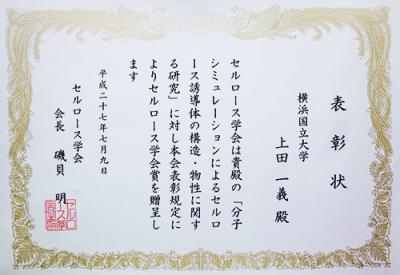 表彰状
横浜国立大学
上田 一義 殿
セルロース学会は貴殿の「分子
シミュレーションによるセルロ
ース誘導体の構造・物性に関す
る研究」に対し本会表彰規定に
よりセルロース学会賞を贈呈し
ます
平成二十七年七月九日
セルロース学会
会長 磯貝 明
セルロ
ース学